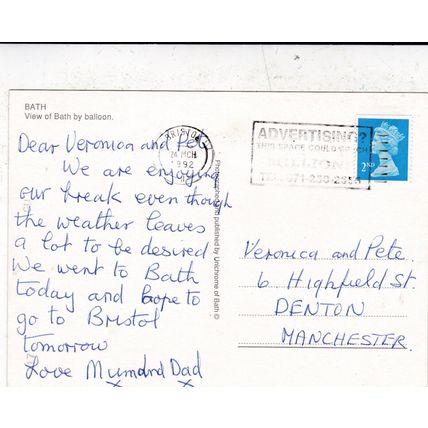 BATH
View of Bath by balloon.
Dear Veronica and Pete
We are enjoying
our break even though
the weather leaves
a lot to be desired
We went to Bath
today and hope to
go to Bristol
tomorrow
Love Mum and Dad
x x
Photographed and published by Unichrome of Bath ©
BRISTOL
24 MCH
1992
ADVERTISING?
THIS SPACE COULD REACH
MILLIONS
TEL 071-250-
2ND
Veronica and Pete.
6 Highfield St.
DENTON
MANCHESTER.